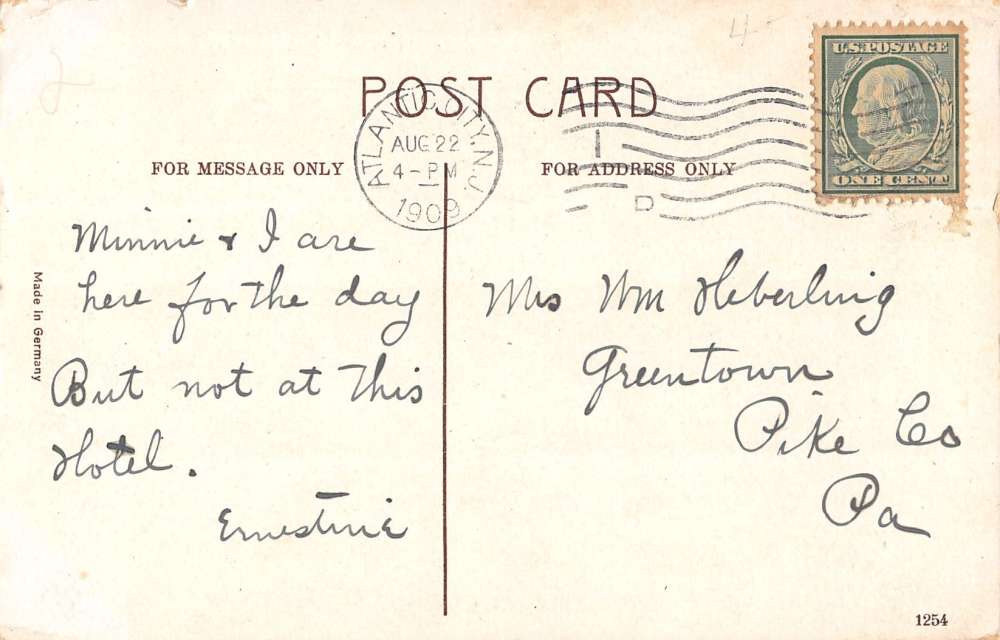 POST CARD
U.S. POSTAGE
ONE CENT
ATLANTIC CITY, N.J.
AUG 22
4 - PM
1909
1
D
4-
2
FOR MESSAGE ONLY
FOR ADDRESS ONLY
Minnie & I are
here for the day
But not at this
Hotel.
Ernestine
Mrs Wm Heberling
Greentown
Pike Co
Pa
Made in Germany
1254